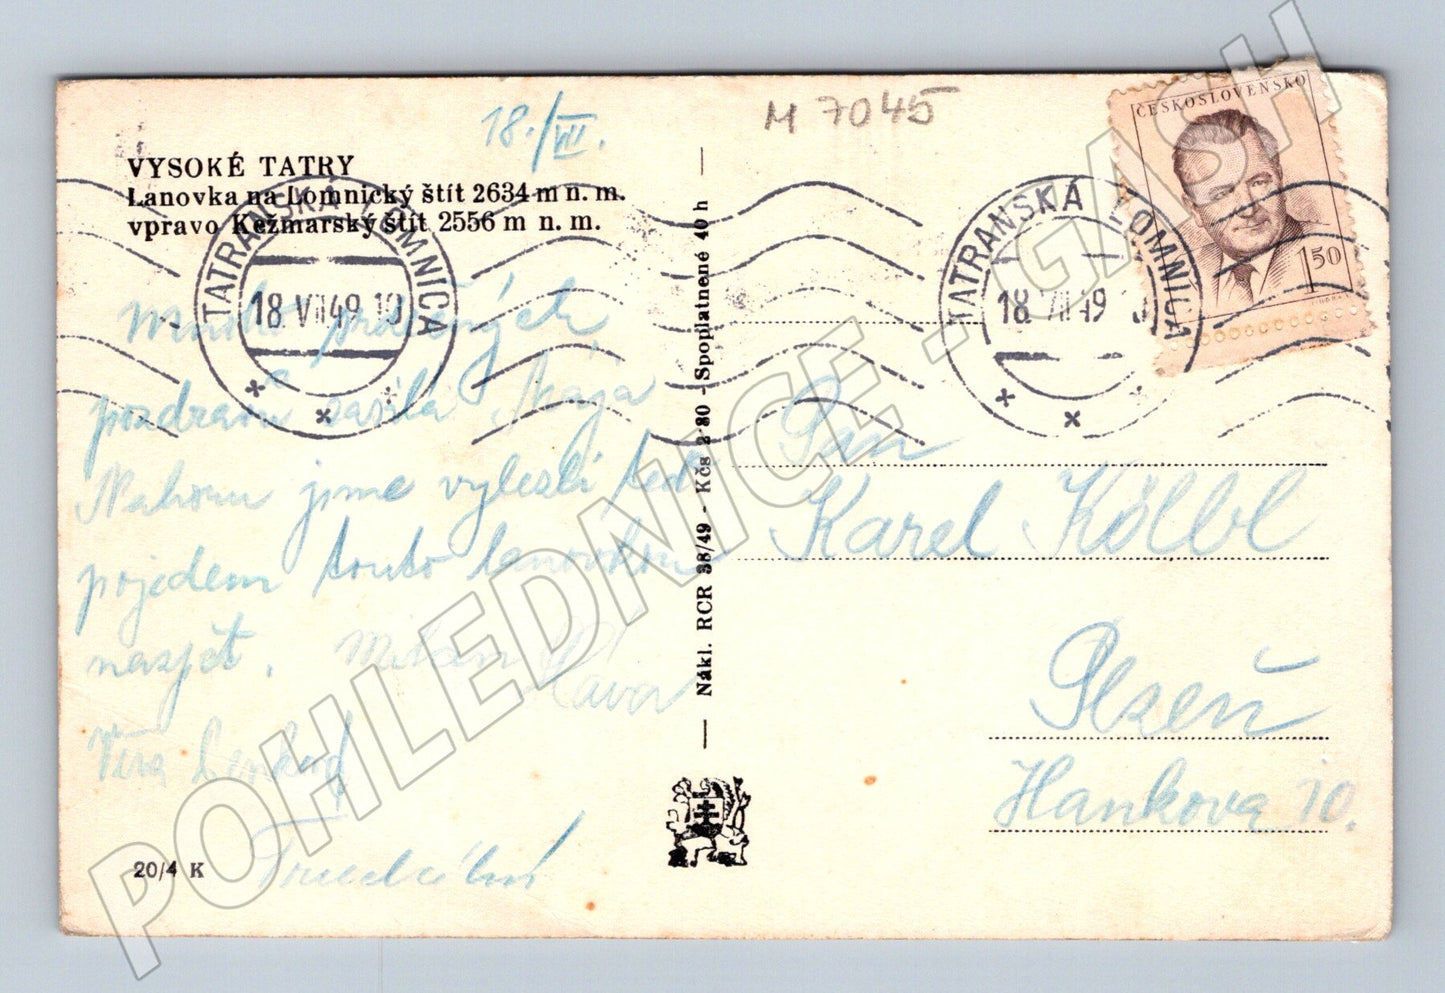 18./VII.
M 7045
VYSOKÉ TATRY
Lanovka na Lomnický štít 2634 m n. m.
vpravo Kežmarský štít 2556 m n. m.
ČESKOSLOVENSKO
1·50
TATRANSKÁ LOMNICA
18. VII 49 10
TATRANSKÁ LOMNICA
18. VII 49
Mnoho srdečných
pozdravů zasílá Mája
Nahoru jsme vylezli teď
pojedem touto lanovkou
nazpět. Milan
Věra
Nákl. RCR 38/49 - Kčs 2·80 - Spoplatnené 40 h
Pan
Karel Kölbl
Plzeň
Hankova 10.
20/4 K
POHLEDNICE - GASH